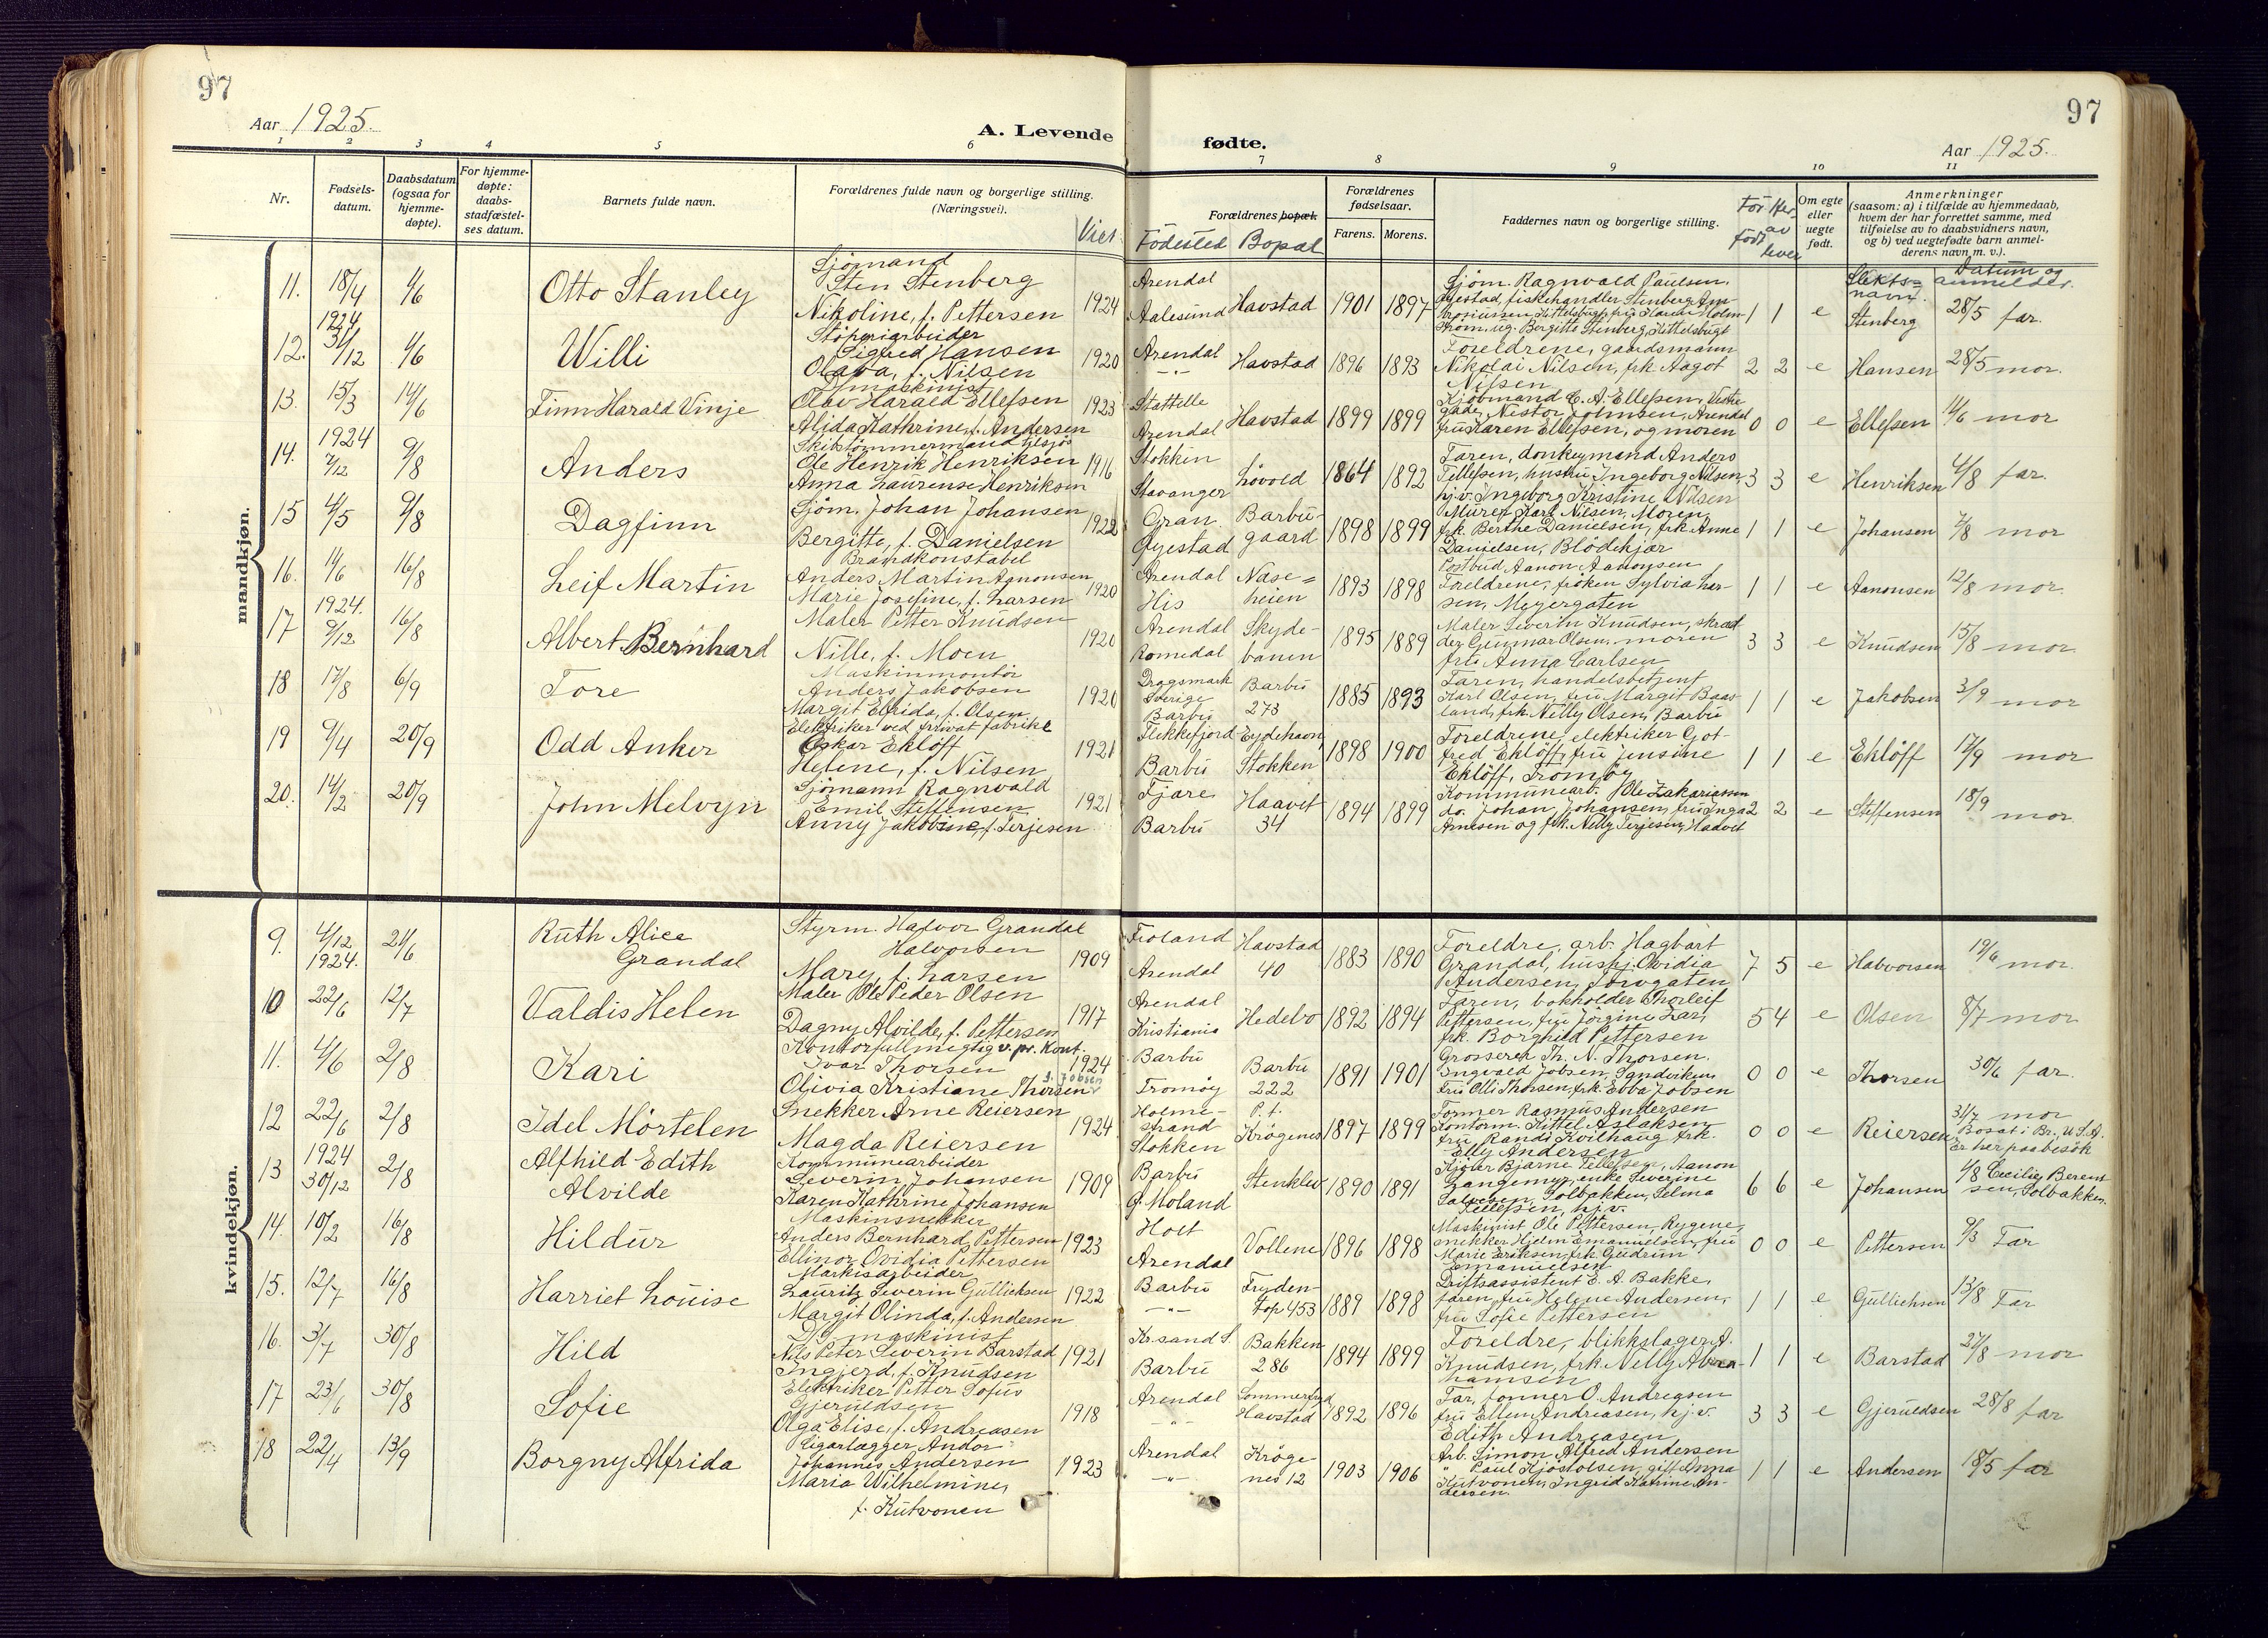 97
97
Aar 1925.
A. Levende
fødte.
Aar 1925.
1 2 3 4 5 6 7 8 9 10 11
Nr.
Fødsels-
datum.
Daabsdatum
(ogsaa for
hjemme-
døpte).
For hjemme-
døpte:
daabs-
stadfæstel-
ses datum.
Barnets fulde navn.
Forældrenes fulde navn og borgerlige stilling.
(Næringsvei).
Viet.
Forældrenes bopæl.
Födested Bopæl
Forældrenes
fødselsaar.
Farens. Morens.
Faddernes navn og borgerlige stilling.
Før født
Her av lever
Om egte
eller
uegte
født.
Anmerkninger
(saasom: a) i tilfælde av hjemmedaab,
hvem der har forrettet samme, med
tilføielse av to daabsvidners navn,
og b) ved uegtefødte barn anmel-
derens navn m. v.).
Slekts=
navn.
Datum og
anmelder.
mandkjøn.
11. 18/4 1/6 Otto Stanley
Sjömand
Sten Stenberg
Nikoline, f. Pettersen 1924
Arendal
Aalesund Havstad 1901 1897
Sjöm. Ragnvald Paulsen,
Øiestad, fiskehandler Stenberg Am-
brosiussen Kittelsbugt, fru Karen Holm-
from, ug. Bergitte Stenberg, Kittelsbugt
1 1 e Stenberg 28/5 far.
12. 1924 31/12 1/6 Willi
Støperiarbeider
Sigurd Hansen
Olava, f. Nilsen 1920
Arendal
-"- Havstad 1896 1893
Foreldrene, gaardsmann
Nikolai Nilsen, frk Aagot
Nilsen
2 2 e Hansen 28/5 mor.
13. 15/3 14/6 Finn Harald Vinje
D/maskinist
Olav Harald Ellefsen
Alida Kathrine, f. Andersen 1923
Stattelle
Arendal Havstad 1899 1899
Kjöbmand C. A. Ellefsen, Vestre
gade, Nestor Johnsen, Arendal
fru Karen Ellefsen, og moren
0 0 e Ellefsen 11/6 mor
14. 1924 7/12 9/8 Anders
Skibstömmermand tilsjös
Ole Henrik Henriksen
Anna Laurense Henriksen 1916
Stokken
Stavanger Lövold 1864 1892
Faren, donkeymand Anders
Tellefsen, hustru Ingeborg Nilsen,
hj.v. Ingeborg Kristine Nilsen
3 3 e Henriksen 4/8 far.
15 4/5 9/8 Dagfinn
Sjöm. Johan Johansen
Bergitte, f. Danielsen 1922
Gran Barbu-
Øyestad gaard 1898 1899
Murer Karl Nilsen, Moren,
frk. Berthe Danielsen, frk Anne
Danielsen, Blödekjær
1 1 e Johansen 7/8 mor
16. 11/6 16/8 Leif Martin
Brandkonstabel
Anders Martin Aanonsen
Marie Josefine, f. Larsen 1920
Arendal Nase=
His heien 1893 1898
Postbud Aanon Aanonsen
Foreldrene, fröken Sylvia Lar-
sen, Meyergaten
1 1 e Aanonsen 12/8 mor.
17 1924. 9/12 16/8 Albert Bernhard
Maler Petter Knudsen
Nille, f. Moen 1920
Arendal Skyde-
Romedal banen 1895 1889
Maler Severin Knudsen, skræd
der Gunnar Olsen, moren
fru Anna Carlsen
3 3 e Knudsen 15/8 mor
18 17/8 6/9 Tore
Maskinmontör
Anders Jakobsen
Margit Elfrida, f. Olsen 1920
Sverige Barbu
Barbu 273 1885 1893
Faren, handelsbetjent
Karl Olsen, fru Margit Baas-
land, frk. Nelly Olsen, Barbu
1 1 e Jakobsen 3/9 mor
19 9/4 20/9 Odd Anker
Elektriker ved privat fabrikk
Oskar Eklöff
Helene, f. Nilsen 1921
Flekkefjord Eydehavn,
Barbu Stokken 1898 1900
Foreldrene, elektriker Got-
fred Eklöff, fru Jensine
Eklöff, Tromöy
1 1 e Eklöff 17/9 mor
20. 14/2 20/9 John Melvyn
Sjömann Ragnvald
Emil Steffensen
Anny Jakobine, f. Terjesen 1921
Fjære Haavet
Barbu 34 1894 1899
Kommunearb. Ole Zakariassen
do. Johan Johansen, fru Inga
Arnesen og frk. Nelly Terjesen, Haavet
2 2 e Steffensen 18/9 mor.
kvindekjøn.
9. 4/12 1924. 21/6 Ruth Alice
Grandal
Styrm. Halvor Grandal
Halvorsen
Mary, f. Larsen 1909
Froland Havstad
Arendal 40 1883 1890
Foreldre, arb. Hagbart
Grandal, hushj. Ovidia
Andersen, Torvgaten
7 5 e Halvorsen 19/6 mor.
10 22/6 12/7 Valdis Helen
Maler Ole Peder Olsen
Dagny Alvilde, f. Pettersen 1917
Arendal
Kristiania Hedebo 1892 1894
Faren, bokholder Thorleif
Pettersen, fru Jörgine Lar,
frk. Borghild Pettersen
5 4 e Olsen 8/7 mor
11. 4/6 2/8 Kari
Kontorfullmegtig v. pr. Kont.
Ivar Thorsen 1924
f. Jobsen
Olivia Kristiane Thorsen
Barbu Barbu
Tromöy 222 1891 1901
Grosserer Th. N. Thorsen.
Ingvald Jobsen, Sandviken,
Fru Olli Thorsen, frk. Ebba Jobsen
0 0 e Thorsen 30/6 far.
12 22/6 2/8 Idel Mörtelen
Snekker Arne Reiersen
Magda Reiersen 1924
Holme- P. t.
strand
Stokken Krögenes 1897 1899
Former Rasmus Andersen
Kontorm. Kittel Aslaksen
fru Randi Kvilhaug frk.
Elly Andersen
0 0 e Reiersen 31/7 mor
Bosat i Br., U.S.A.
Er her paa besök
13 1924 30/12 2/8 Alfhild Edith
Alvilde
Kommunearbeider
Severin Johansen
Karen Kathrine Johansen 1909
Barbu
Ø. Moland Stenklev 1890 1891
Kjörer Bjarne Tellefsen, Aanon
Langemyr, enke Severine
Salvesen, Solbakken, Selma
Tellefsen, hj.v.
6 6 e Johansen 1/8 Cecilie Berent
sen, Solbakken.
14. 10/2 16/8 Hildur
Maskinsnekker
Anders Bernhard Pettersen
Ellinor Ovidia Pettersen 1923
Holt
Arendal Vollene 1896 1898
Maskinist Ole Pettersen, Rygene,
snekker Hjelm Emanuelsen, fru
Marie Eriksen, frk. Gudrun
Emanuelsen
0 0 e Pettersen 9/3 Far
15. 12/7 16/8 Harriet Louise
Markisarbeider
Lauritz Severin Gullichsen
Margit Olinda, f. Andersen 1922
Barbu Fryden-
-"- top 453 1889 1898
Driftsassistent E. A. Bakke,
faren, fru Helene Andersen,
fru Sofie Pettersen
1 1 e Gullichsen 13/8 Far
16. 3/7 30/8 Hild
D/S maskinist
Nils Peter Severin Barstad
Ingjerd, f. Knudsen 1921
Kr.sand S. Bakken
Barbu 286 1894 1899
Foreldre, blikkslager A.
Knudsen, frk. Nelly Abra-
hamsen
1 1 e Barstad 27/8 mor
17 23/6 30/8 Sofie
Elektriker Petter Sofus
Gjeruldsen
Olga Elise, f. Andreasen 1918
Arendal Sommerfryd
-"- Havstad 1892 1896
Far, former O. Andreasen
fru Ellen Andreasen, hj.v.
Edith Andreasen
3 3 e Gjeruldsen 28/8 far
18 22/4 13/9 Borgny Alfrida
Sigarlægger Andor
Johannes Andersen
Maria Wilhelmine, 1923
f. Kutvonen
Arendal Kröge-
-"- nes 12 1903 1906
Arb. Simon Alfred Andersen
" Paul Kjöstolsen, gift Anna
Kutvonen, Ingrid Katrine An-
dersen.
1 1 e Andersen 18/5 far